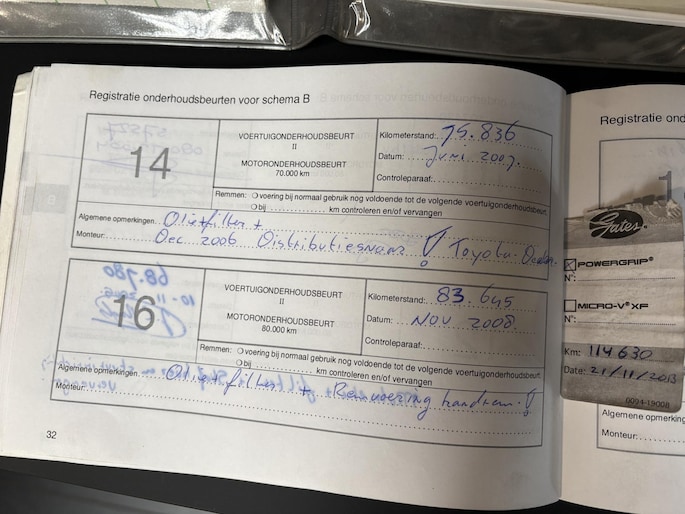 Registratie onderhoudsbeurten voor schema B
14
VOERTUIGONDERHOUDSBEURT
II
MOTORONDERHOUDSBEURT
70.000 km
Kilometerstand: 75.836
Datum: Juni 2007.
Controleparaaf:
Remmen: O voering bij normaal gebruik nog voldoende tot de volgende voertuigonderhoudsbeurt
O bij km controleren en/of vervangen
Algemene opmerkingen. Olie+filter +
Monteur: Dec 2006 Distributiesnaar ! Toyota-
16
VOERTUIGONDERHOUDSBEURT
II
MOTORONDERHOUDSBEURT
80.000 km
Kilometerstand: 83.645
Datum: NOV 2008
Controleparaaf:
Remmen: O voering bij normaal gebruik nog voldoende tot de volgende voertuigonderhoudsbeurt
O bij km controleren en/of vervangen
Algemene opmerkingen. Olie+filter + Remvoering handrem !
Monteur:
32
Registratie ond
1
Gates
POWERGRIP®
N°:
MICRO-V® XF
N°:
Km: 114630
Date: 21/11/2013
0094-19008
Algemene opmerking
Monteur: